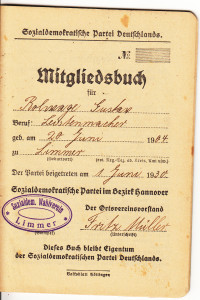 Sozialdemokratische Partei Deutschlands.
№
Mitgliedsbuch
für
Gustav
Beruf: Leistenmacher
geb. am 20 Juni 1904
zu Limmer
Der Partei beigetreten am 1 Juni 1930.
Sozialdemokratische Partei im Bezirk Hannover
Der Ortsvereinsvorstand
Sozialdem. Wahlverein
Limmer
Fritz Müller
(Unterschrift)
Dieses Buch bleibt Eigentum
der Sozialdemokratischen Partei Deutschlands.
Volksblatt Göttingen